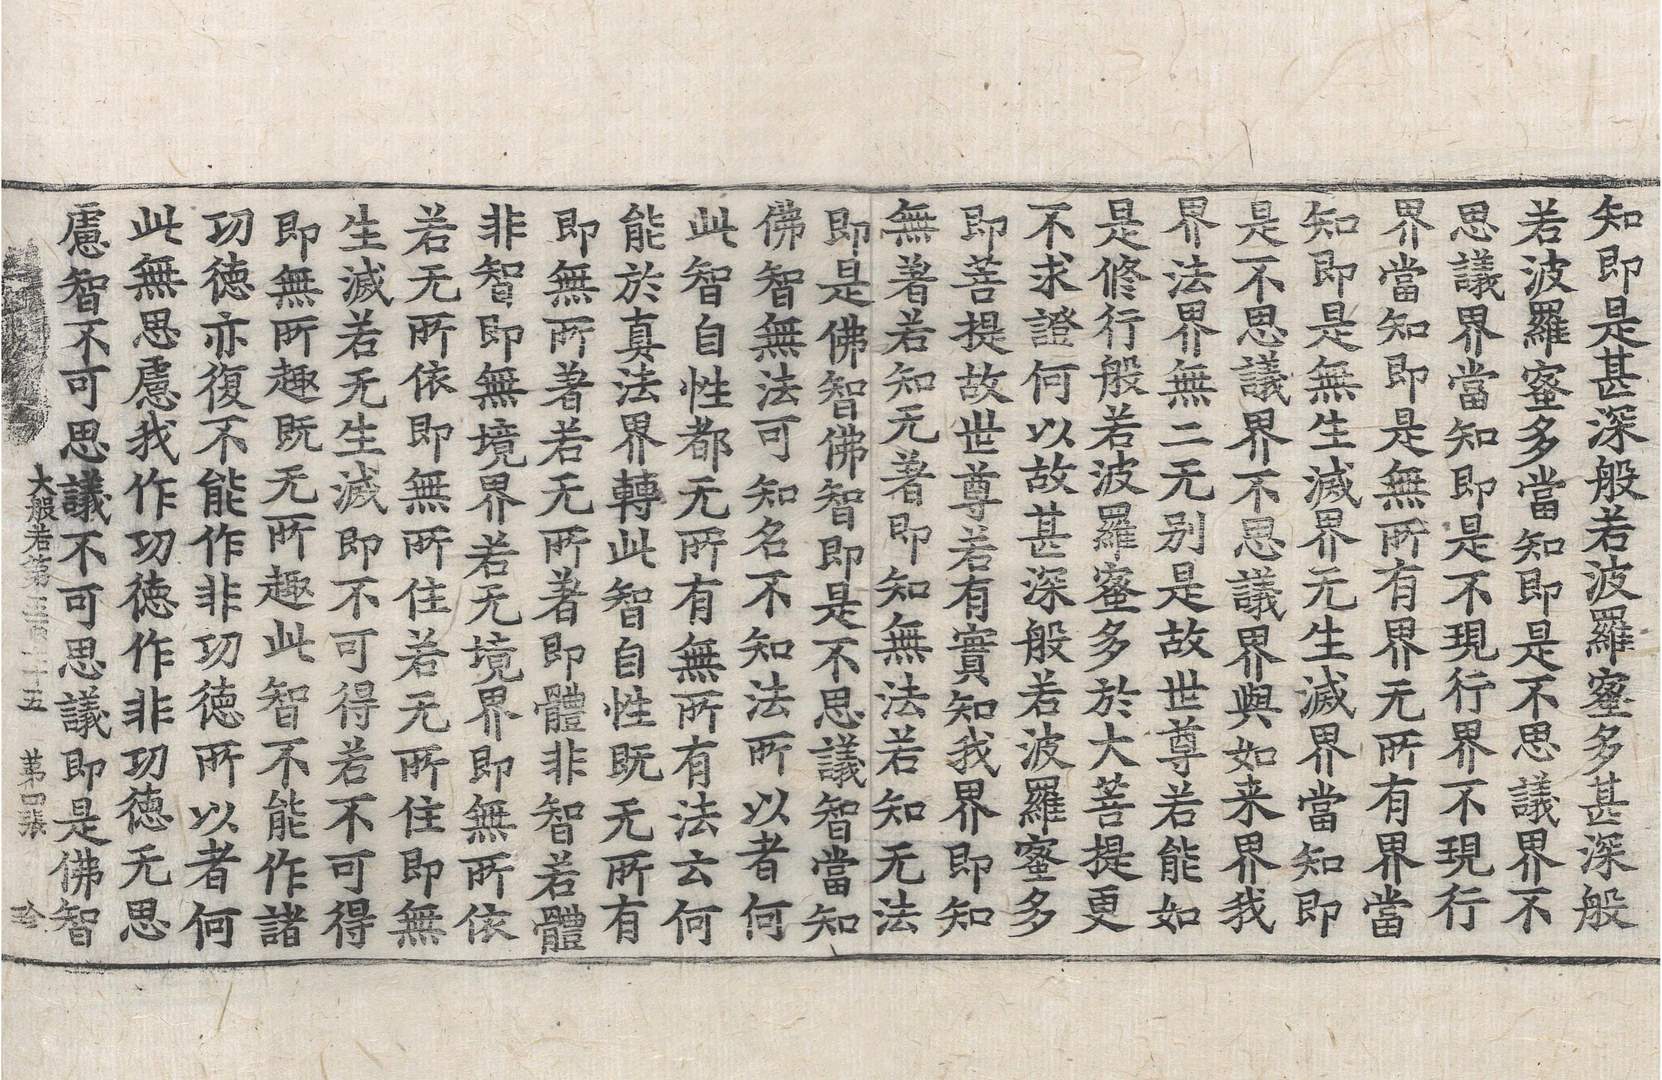 知即是甚深般若波羅蜜多甚深般
若波羅蜜多當知即是不思議界不
思議界當知即是不現行界不現行
界當知即是無所有界无所有界當
知即是無生滅界无生滅界當知即
是不思議界不思議界與如来界我
界法界無二无别是故世尊若能如
是修行般若波羅蜜多於大菩提更
不求證何以故甚深般若波羅蜜多
即菩提故世尊若有實知我界即知
無著若知无著即知無法若知无法
即是佛智佛智即是不思議智當知
佛智無法可知名不知法所以者何
此智自性都无所有無所有法云何
能於真法界轉此智自性既无所有
即無所著若无所著即體非智若體
非智即無境界若无境界即無所依
若无所依即無所住若无所住即無
生滅若无生滅即不可得若不可得
即無所趣既无所趣此智不能作諸
功徳亦復不能作非功徳所以者何
此無思慮我作功徳作非功徳无思
慮智不可思議不可思議即是佛智
大般若第五百七十五 第四張